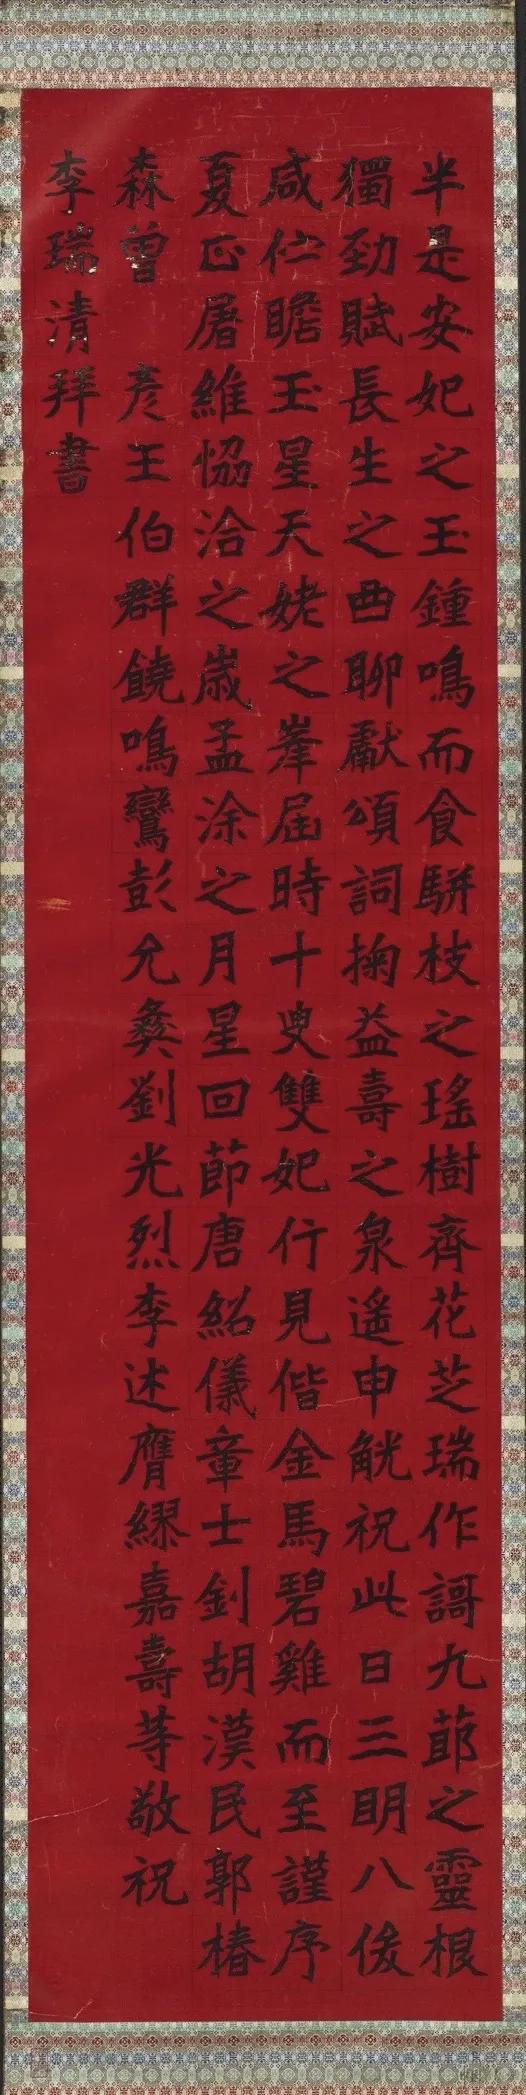 半是安妃之玉鍾鳴而食駢枝之瑤樹齊花芝瑞作謌九節之靈根
獨勁賦長生之酉聊獻頌詞掬益壽之泉遥申觥祝此日三明八俊
咸伫瞻玉星天姥之峯屆時十叟雙妃行見偕金馬碧雞而至謹序
夏正屠維協洽之歲孟涂之月星回節唐紹儀章士釗胡漢民郭椿
森曾彥王伯群饒鳴鸞彭允彝劉光烈李述膺繆嘉壽等敬祝
李瑞清拜書